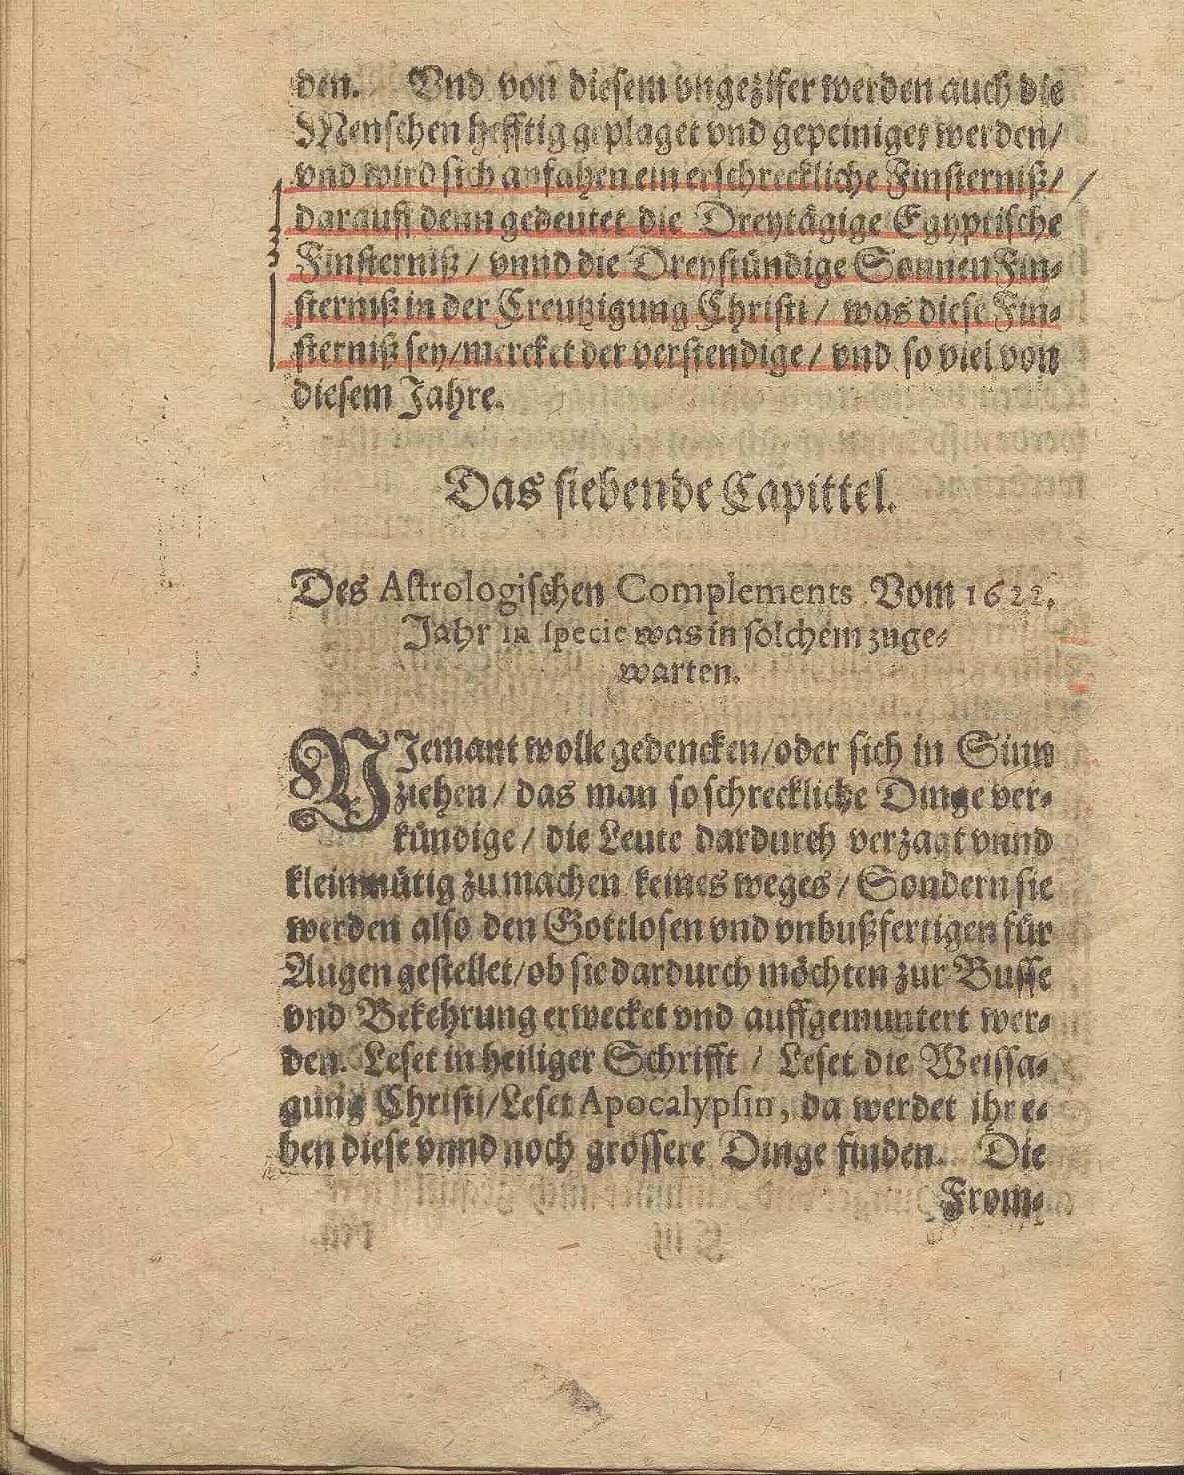 den. Vnd von diesem vngezifer werden auch die
Menschen hefftig geplaget vnd gepeiniget werden/
vnd wird sich anfahen ein erschreckliche Finsterniß/
darauff denn gedeutet die Dreytägige Egyptische
Finsterniß/ vnnd die Dreystündige Sonnen Fin-
sterniß in der Creutzigung Christi/ was diese Fin-
sterniß sey/mercket der verstendige/ vnd so viel von
diesem Jahre.
Das siebende Capittel.
Des Astrologischen Complements Vom 1622.
Jahr in specie was in solchem zuge-
warten.
NJemant wolle gedencken/oder sich in Sinn
ziehen/ das man so schreckliche Dinge ver-
kündige/ die Leute dardurch verzagt vnnd
kleinmütig zu machen/keines weges/ Sondern sie
werden also den Gottlosen vnd vnbußfertigen für
Augen gestellet/ob sie dardurch möchten zur Busse
vnd Bekehrung erwecket vnd auffgemuntert wer-
den. Leset in heiliger Schrifft/ Leset die Weissa-
gung Christi/Leset Apocalypsin, da werdet ihr e-
ben diese vnnd noch grössere Dinge finden. Die
From-